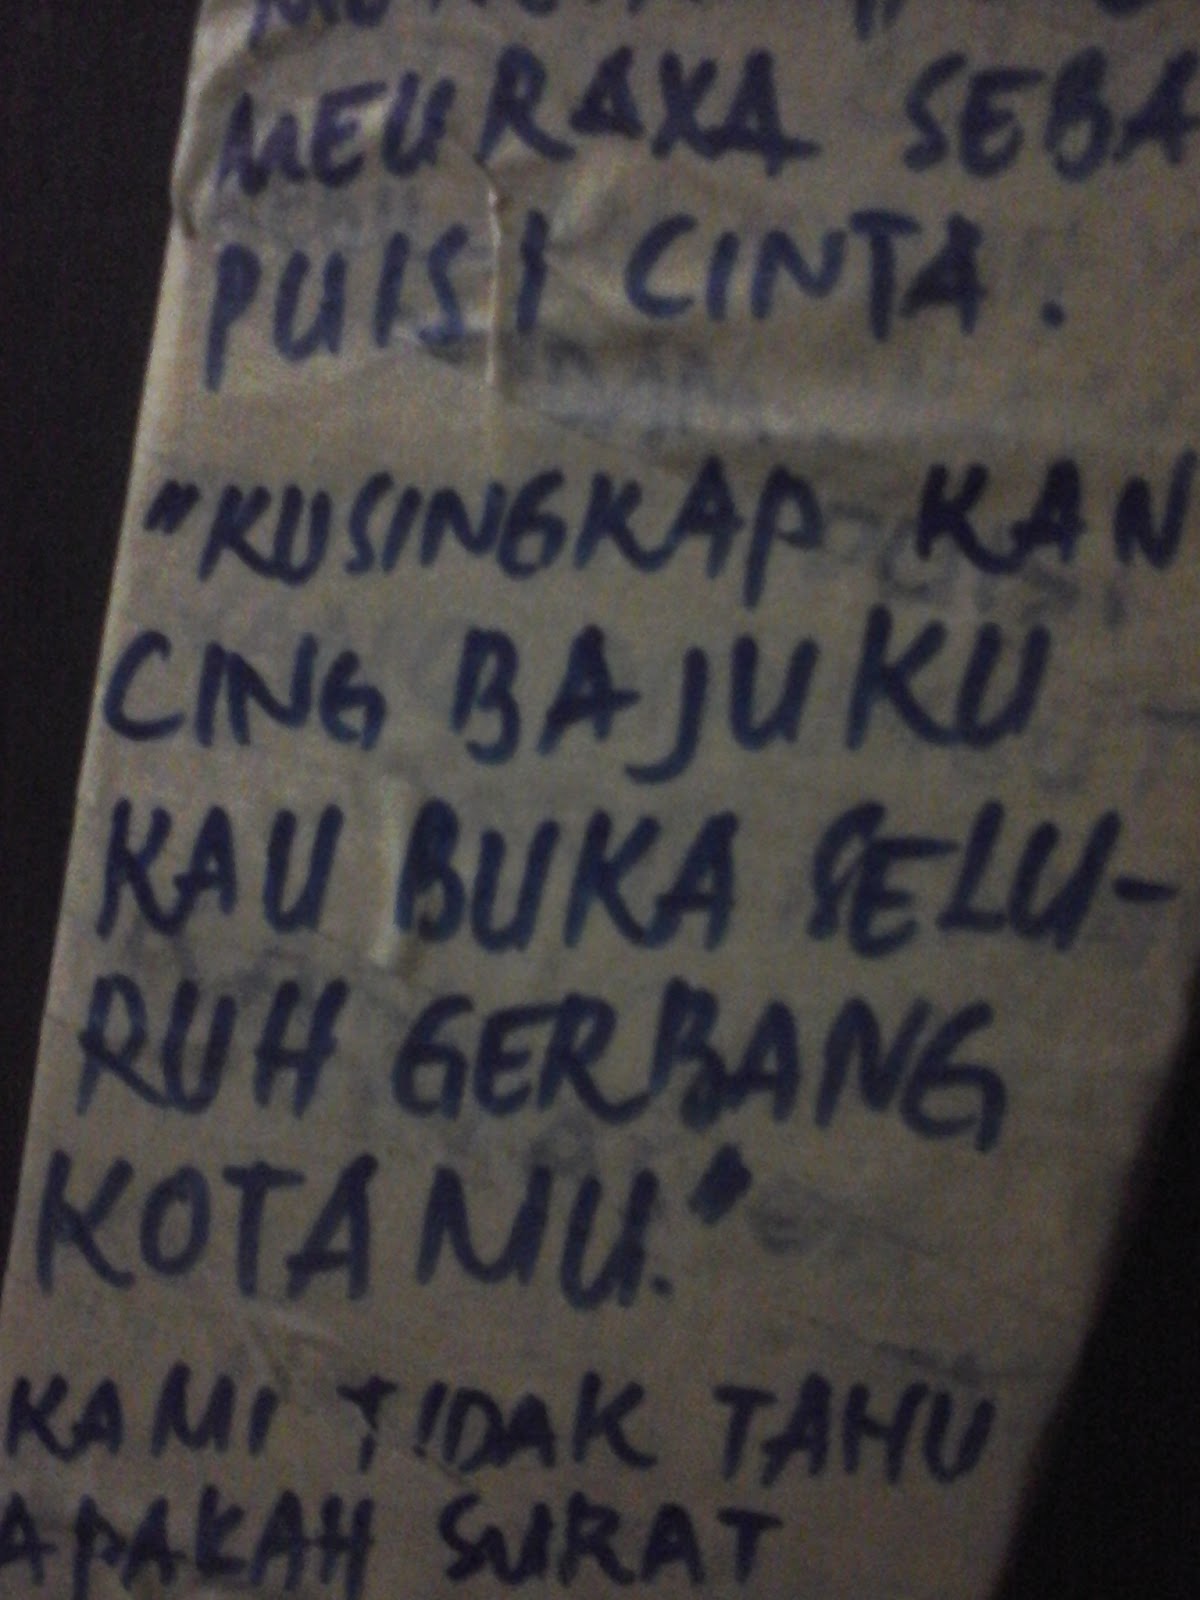 MEURAXA SEBA
PUISI CINTA.
"KUSINGKAP KAN
CING BAJUKU
KAU BUKA SELU-
RUH GERBANG
KOTAMU."
KAMI TIDAK TAHU
APAKAH SURAT